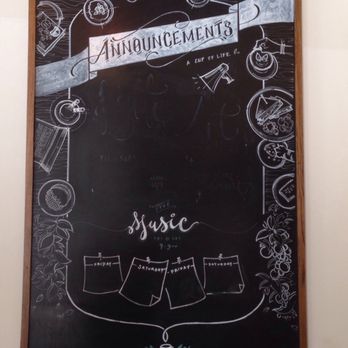 ANNOUNCEMENTS
A CUP OF LIFE
Music
FRIDAY
SATURDAY
FRIDAY
SATURDAY